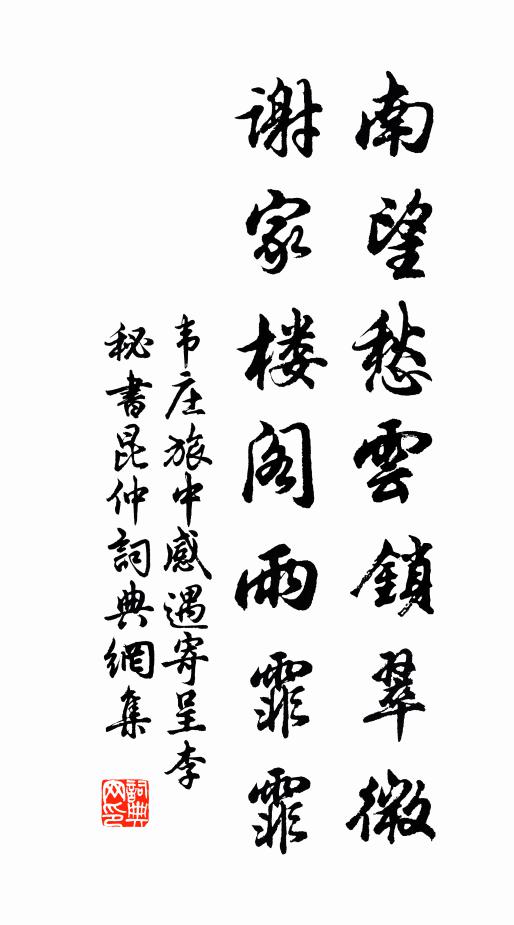 南望愁雲鎖翠微
謝家楼阁雨霏霏
韦庄旅中感遇寄呈李
秘書昆仲詞典網集
詞典
网印